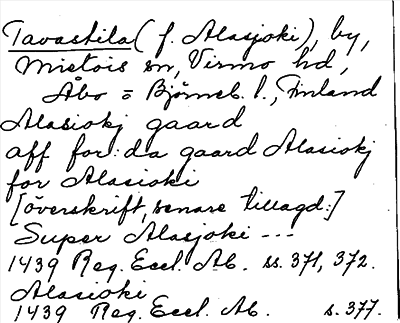 Tavastila (f. Alasjoki), by,
Mietois sn, Virmo hd,
Åbo = Björneb. l., Finland
Alasiokj gaard
aff for:da gaard Alasiokj
for Alasioki
[överskrift, senare tillagd:]
Super Alasjoki ---
1439 Reg. Eccl. Ab. ss. 371, 372.
Alasioki
1439 Reg. Eccl. Ab. s. 377.